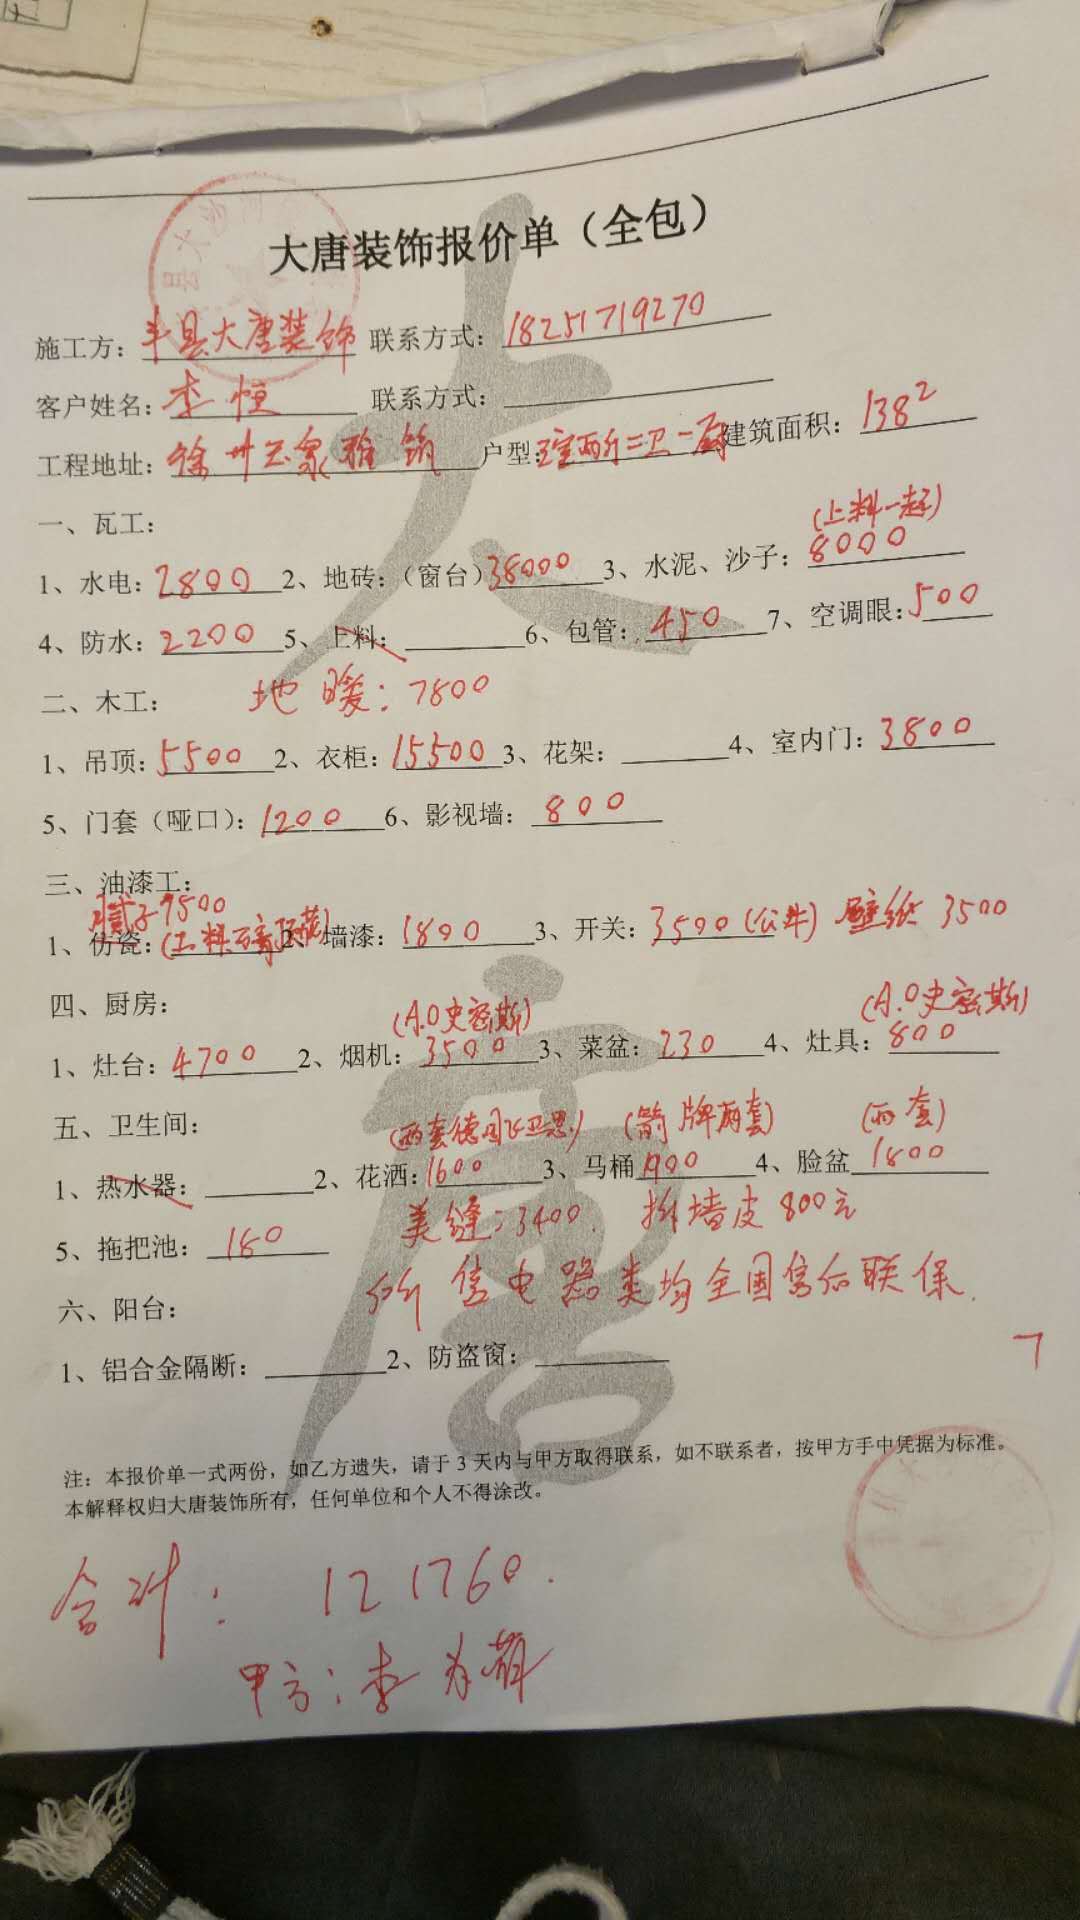 大唐装饰报价单（全包）
施工方：丰县大唐装饰 联系方式：18251719270
客户姓名：李恒 联系方式：
工程地址：徐州玉泉雅筑 户型：三室两厅二卫一厨 建筑面积：138²
一、瓦工：
(上料一起)
1、水电：2800 2、地砖：（窗台）38000 3、水泥、沙子：8000
4、防水：2200 5、上料： 6、包管：450 7、空调眼：500
二、木工： 地暖：7800
1、吊顶：5500 2、衣柜：15500 3、花架： 4、室内门：3800
5、门套（哑口）：1200 6、影视墙：800
三、油漆工：
腻子7500
1、仿瓷： 2、墙漆：1800 3、开关：3500(公牛) 壁纸 3500
四、厨房：
(A.O史密斯) (A.O史密斯)
1、灶台：4700 2、烟机：3500 3、菜盆：230 4、灶具：800
五、卫生间：
(箭牌两套) (两套)
1、热水器： 2、花洒：1600 3、马桶 1900 4、脸盆 1800
美缝：3400. 拆墙皮800元
5、拖把池：180
所售电器类均全国售后联保.
六、阳台：
1、铝合金隔断： 2、防盗窗：
注：本报价单一式两份，如乙方遗失，请于3天内与甲方取得联系，如不联系者，按甲方手中凭据为标准。
本解释权归大唐装饰所有，任何单位和个人不得涂改。
合计：121760.
甲方：李